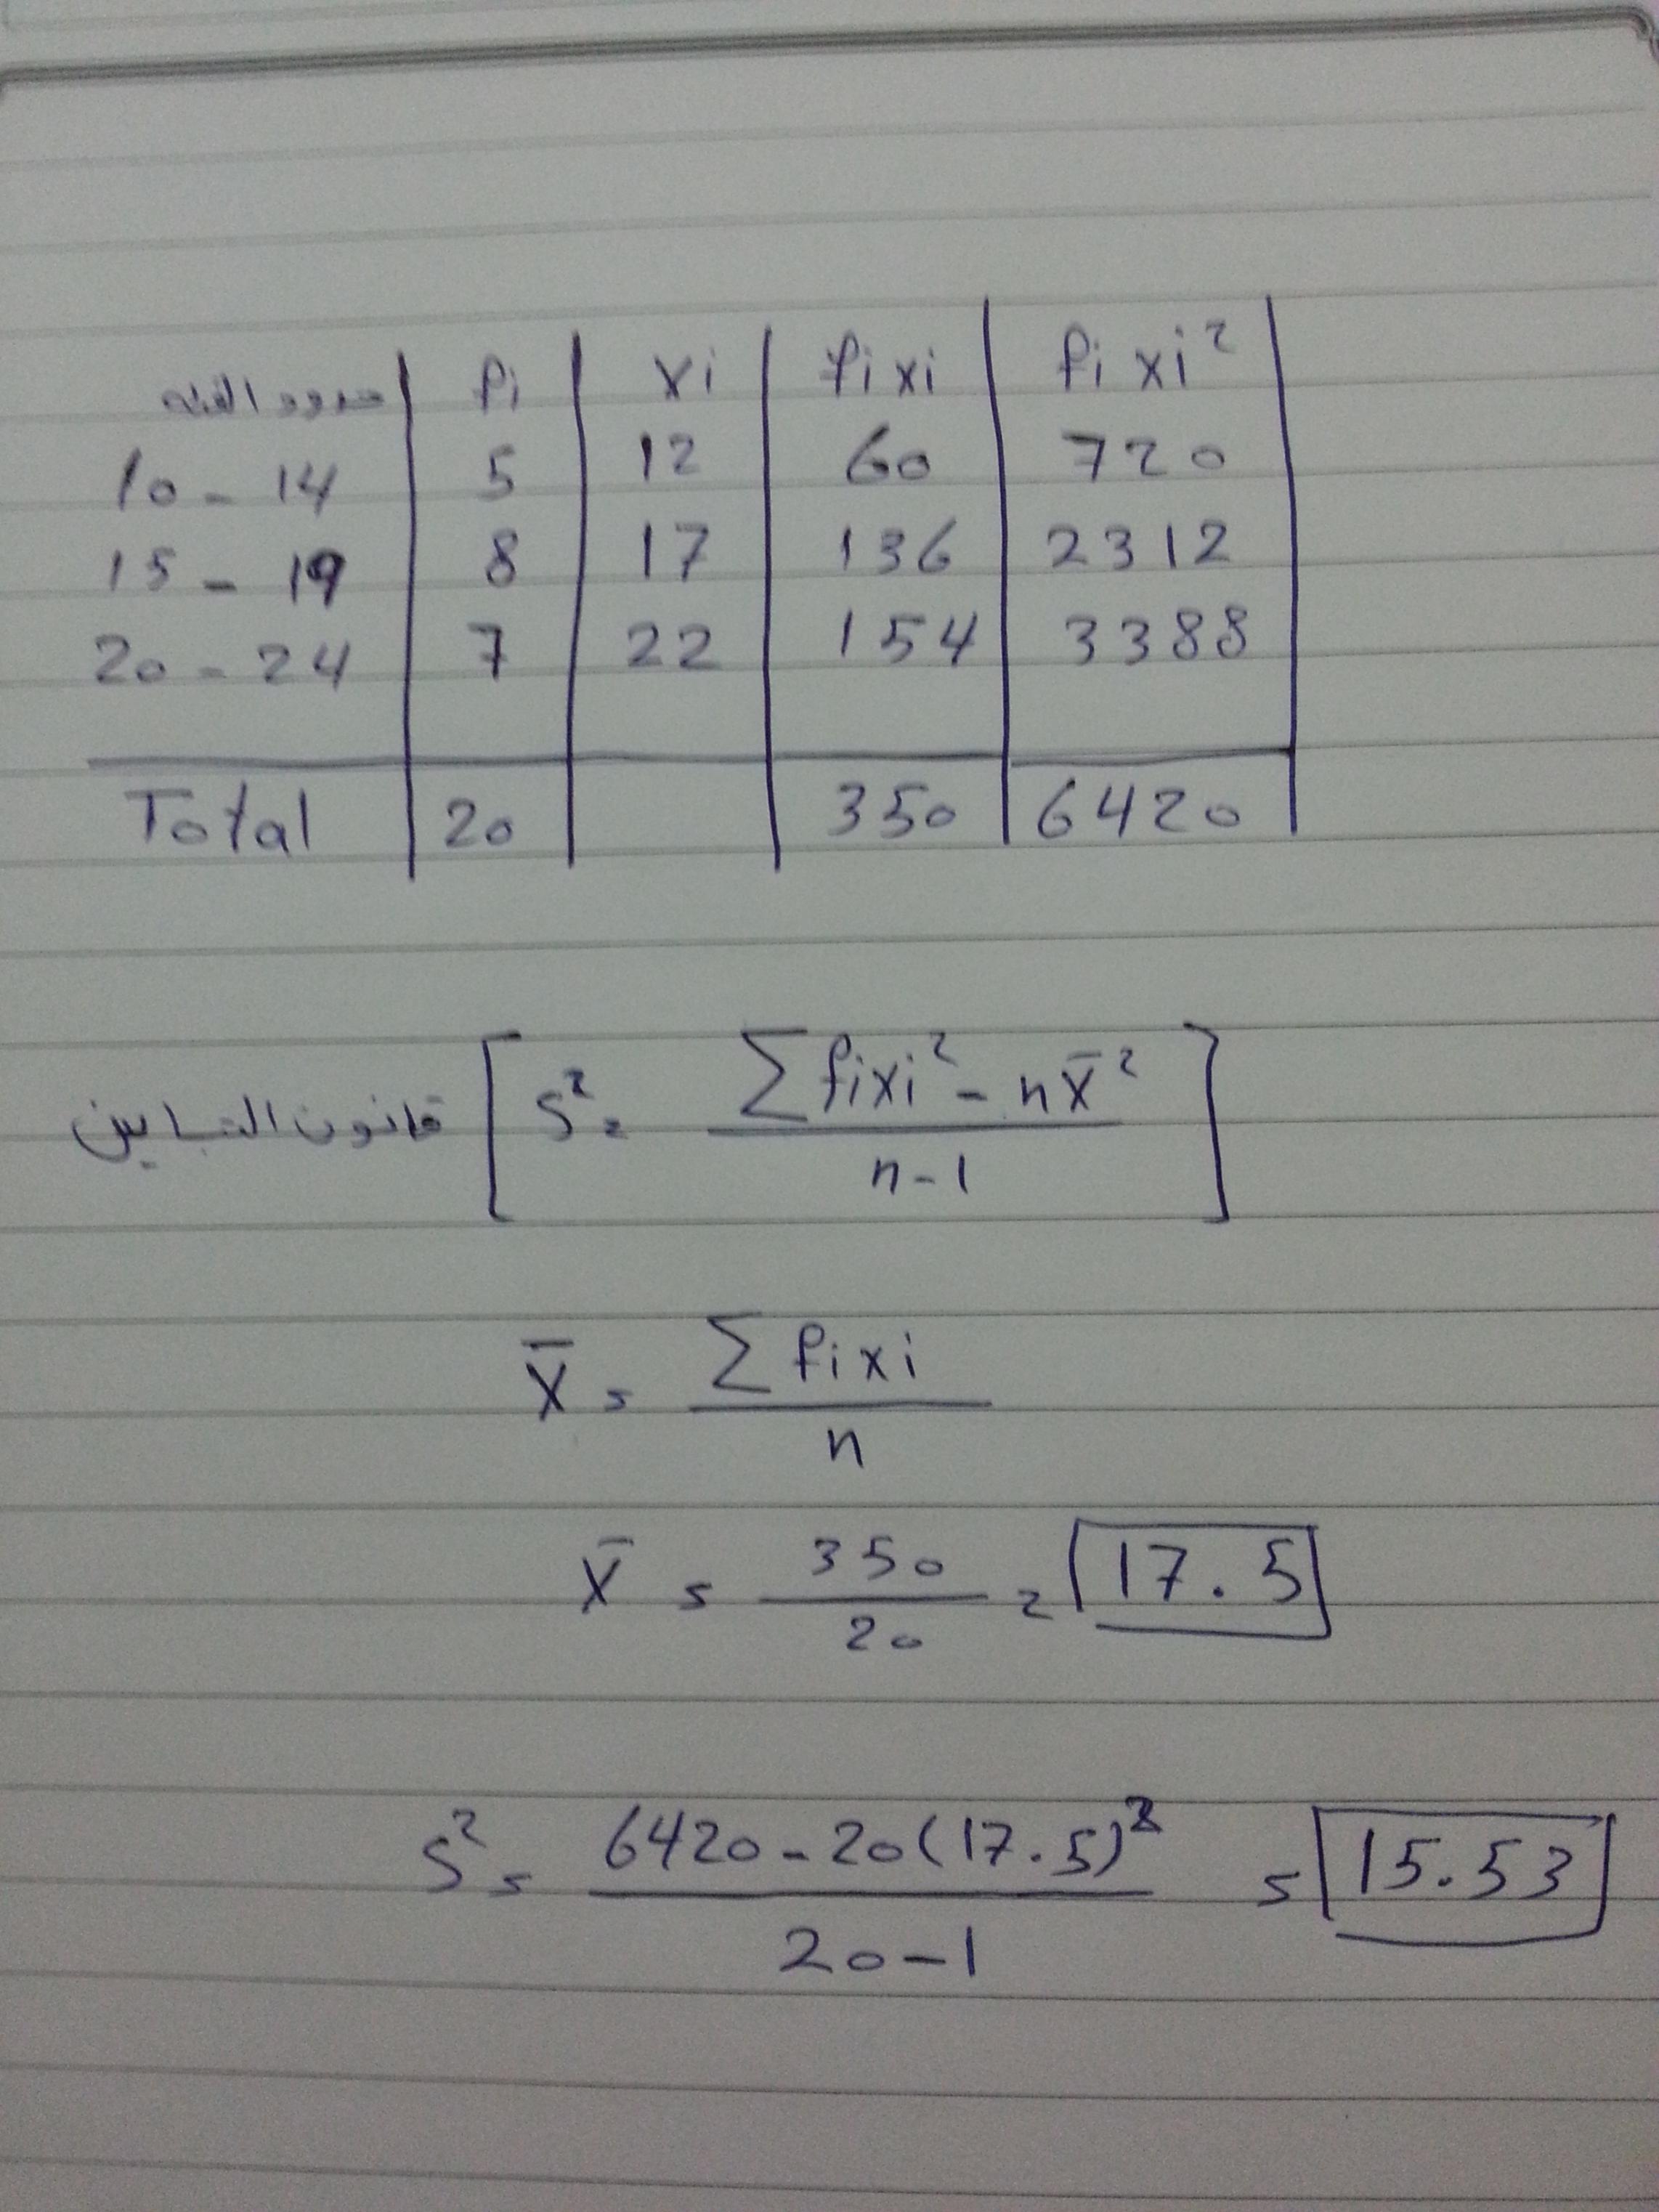 حدود الفئه fi xi fixi fixi²
10 - 14 5 12 60 720
15 - 19 8 17 136 2312
20 - 24 7 22 154 3388
Total 20 350 6420
قانون التباين [ S² = (∑fixi² - nx̄²) / (n-1) ]
X̄ = ∑fixi / n
X̄ = 350 / 20 = 17.5
S² = (6420 - 20(17.5)²) / (20-1) = 15.53